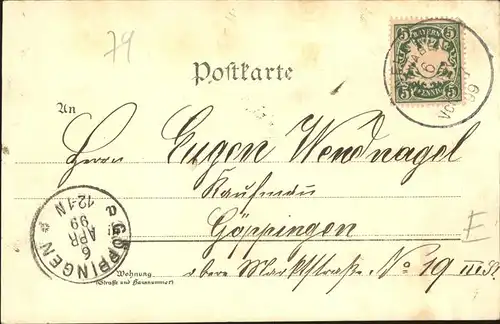 79
5 BAYERN 5
5 PFENNIG 5
6
99
Postkarte
An
Herrn Eugen Wendnagel
Kaufmann
Göppingen
E
GÖPPINGEN
6
APR
99
12-1 N
Wohnung
(Straße und Hausnummer)
obere Marktstraße No 19 III St.